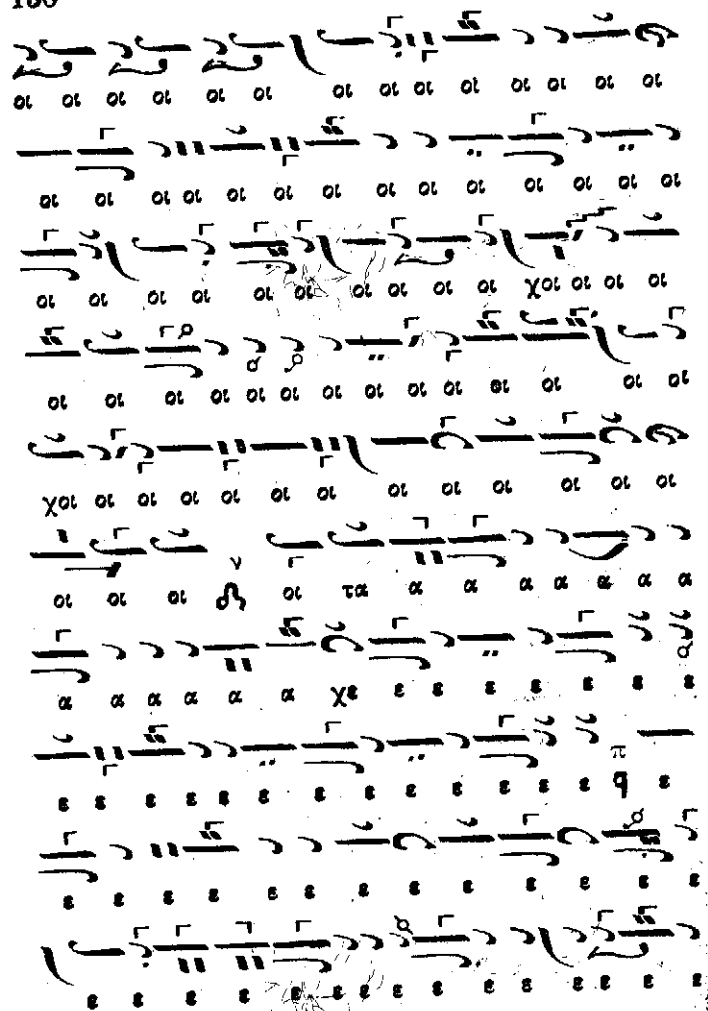 οι οι οι οι οι οι οι οι οι οι οι οι οι οι
οι οι οι οι οι οι οι οι οι οι οι οι οι οι
οι οι οι οι οι οι οι οι οι οι χοι οι οι οι
οι οι οι οι οι οι οι οι οι οι οι οι οι οι
χοι οι οι οι οι οι οι οι οι οι οι οι οι
οι οι οι ν οι τα α α α α α α α
α α α α α α χε ε ε ε ε ε ε ε
ε ε ε ε ε ε ε ε ε ε ε ε ε π q ε
ε ε ε ε ε ε ε ε ε ε ε ε ε
ε ε ε ε ε ε ε ε ε ε ε ε ε ε ε